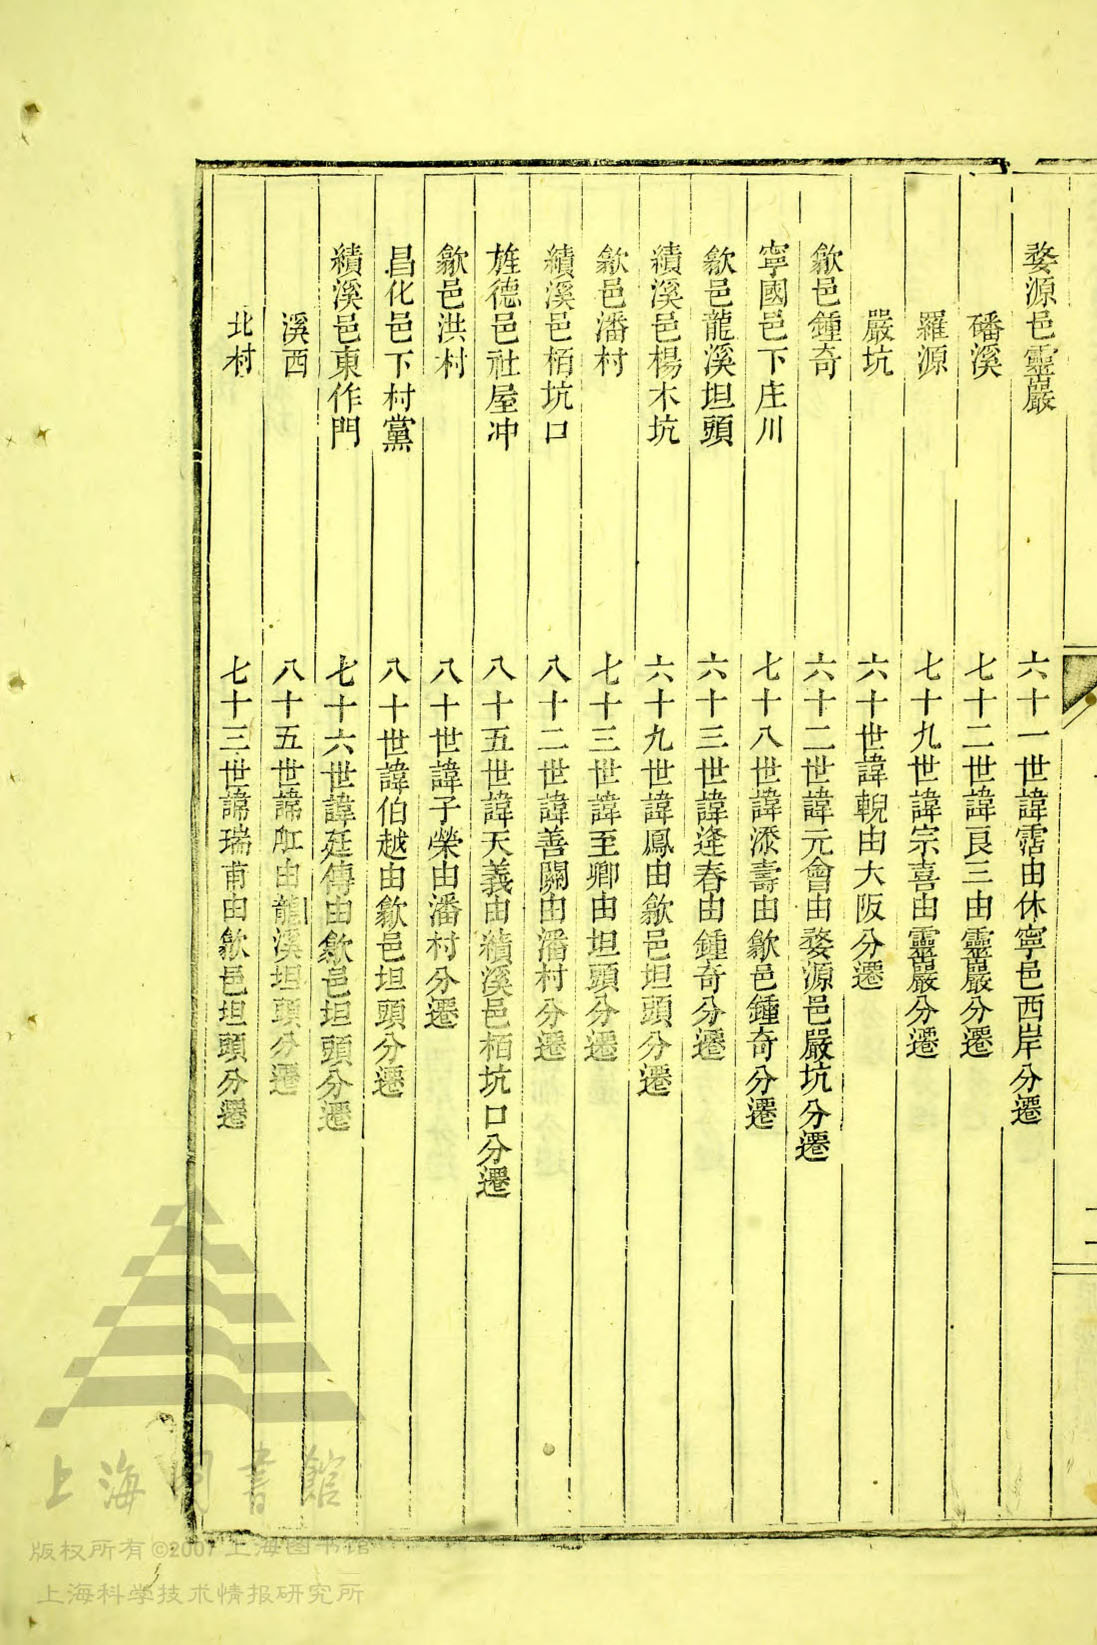 婺源邑靈巖
六十一世諱霑由休寧邑西岸分遷
磻溪
七十二世諱良三由靈巖分遷
羅源
七十九世諱宗喜由靈巖分遷
嚴坑
六十世諱輗由大阪分遷
歙邑鍾奇
六十二世諱元會由婺源邑嚴坑分遷
寧國邑下庄川
七十八世諱添壽由歙邑鍾奇分遷
歙邑龍溪坦頭
六十三世諱逢春由鍾奇分遷
績溪邑楊木坑
六十九世諱鳳由歙邑坦頭分遷
歙邑潘村
七十三世諱至卿由坦頭分遷
績溪邑栢坑口
八十二世諱善關由潘村分遷
旌德邑社屋冲
八十五世諱天義由績溪邑栢坑口分遷
歙邑洪村
八十世諱子榮由潘村分遷
昌化邑下村黨
八十世諱伯越由歙邑坦頭分遷
績溪邑東作門
七十六世諱廷傳由歙邑坦頭分遷
溪西
八十五世諱由龍溪坦頭分遷
北村
七十三世諱瑞甫由歙邑坦頭分遷
上海圖書館
版权所有©2007上海图书馆
上海科学技术情报研究所